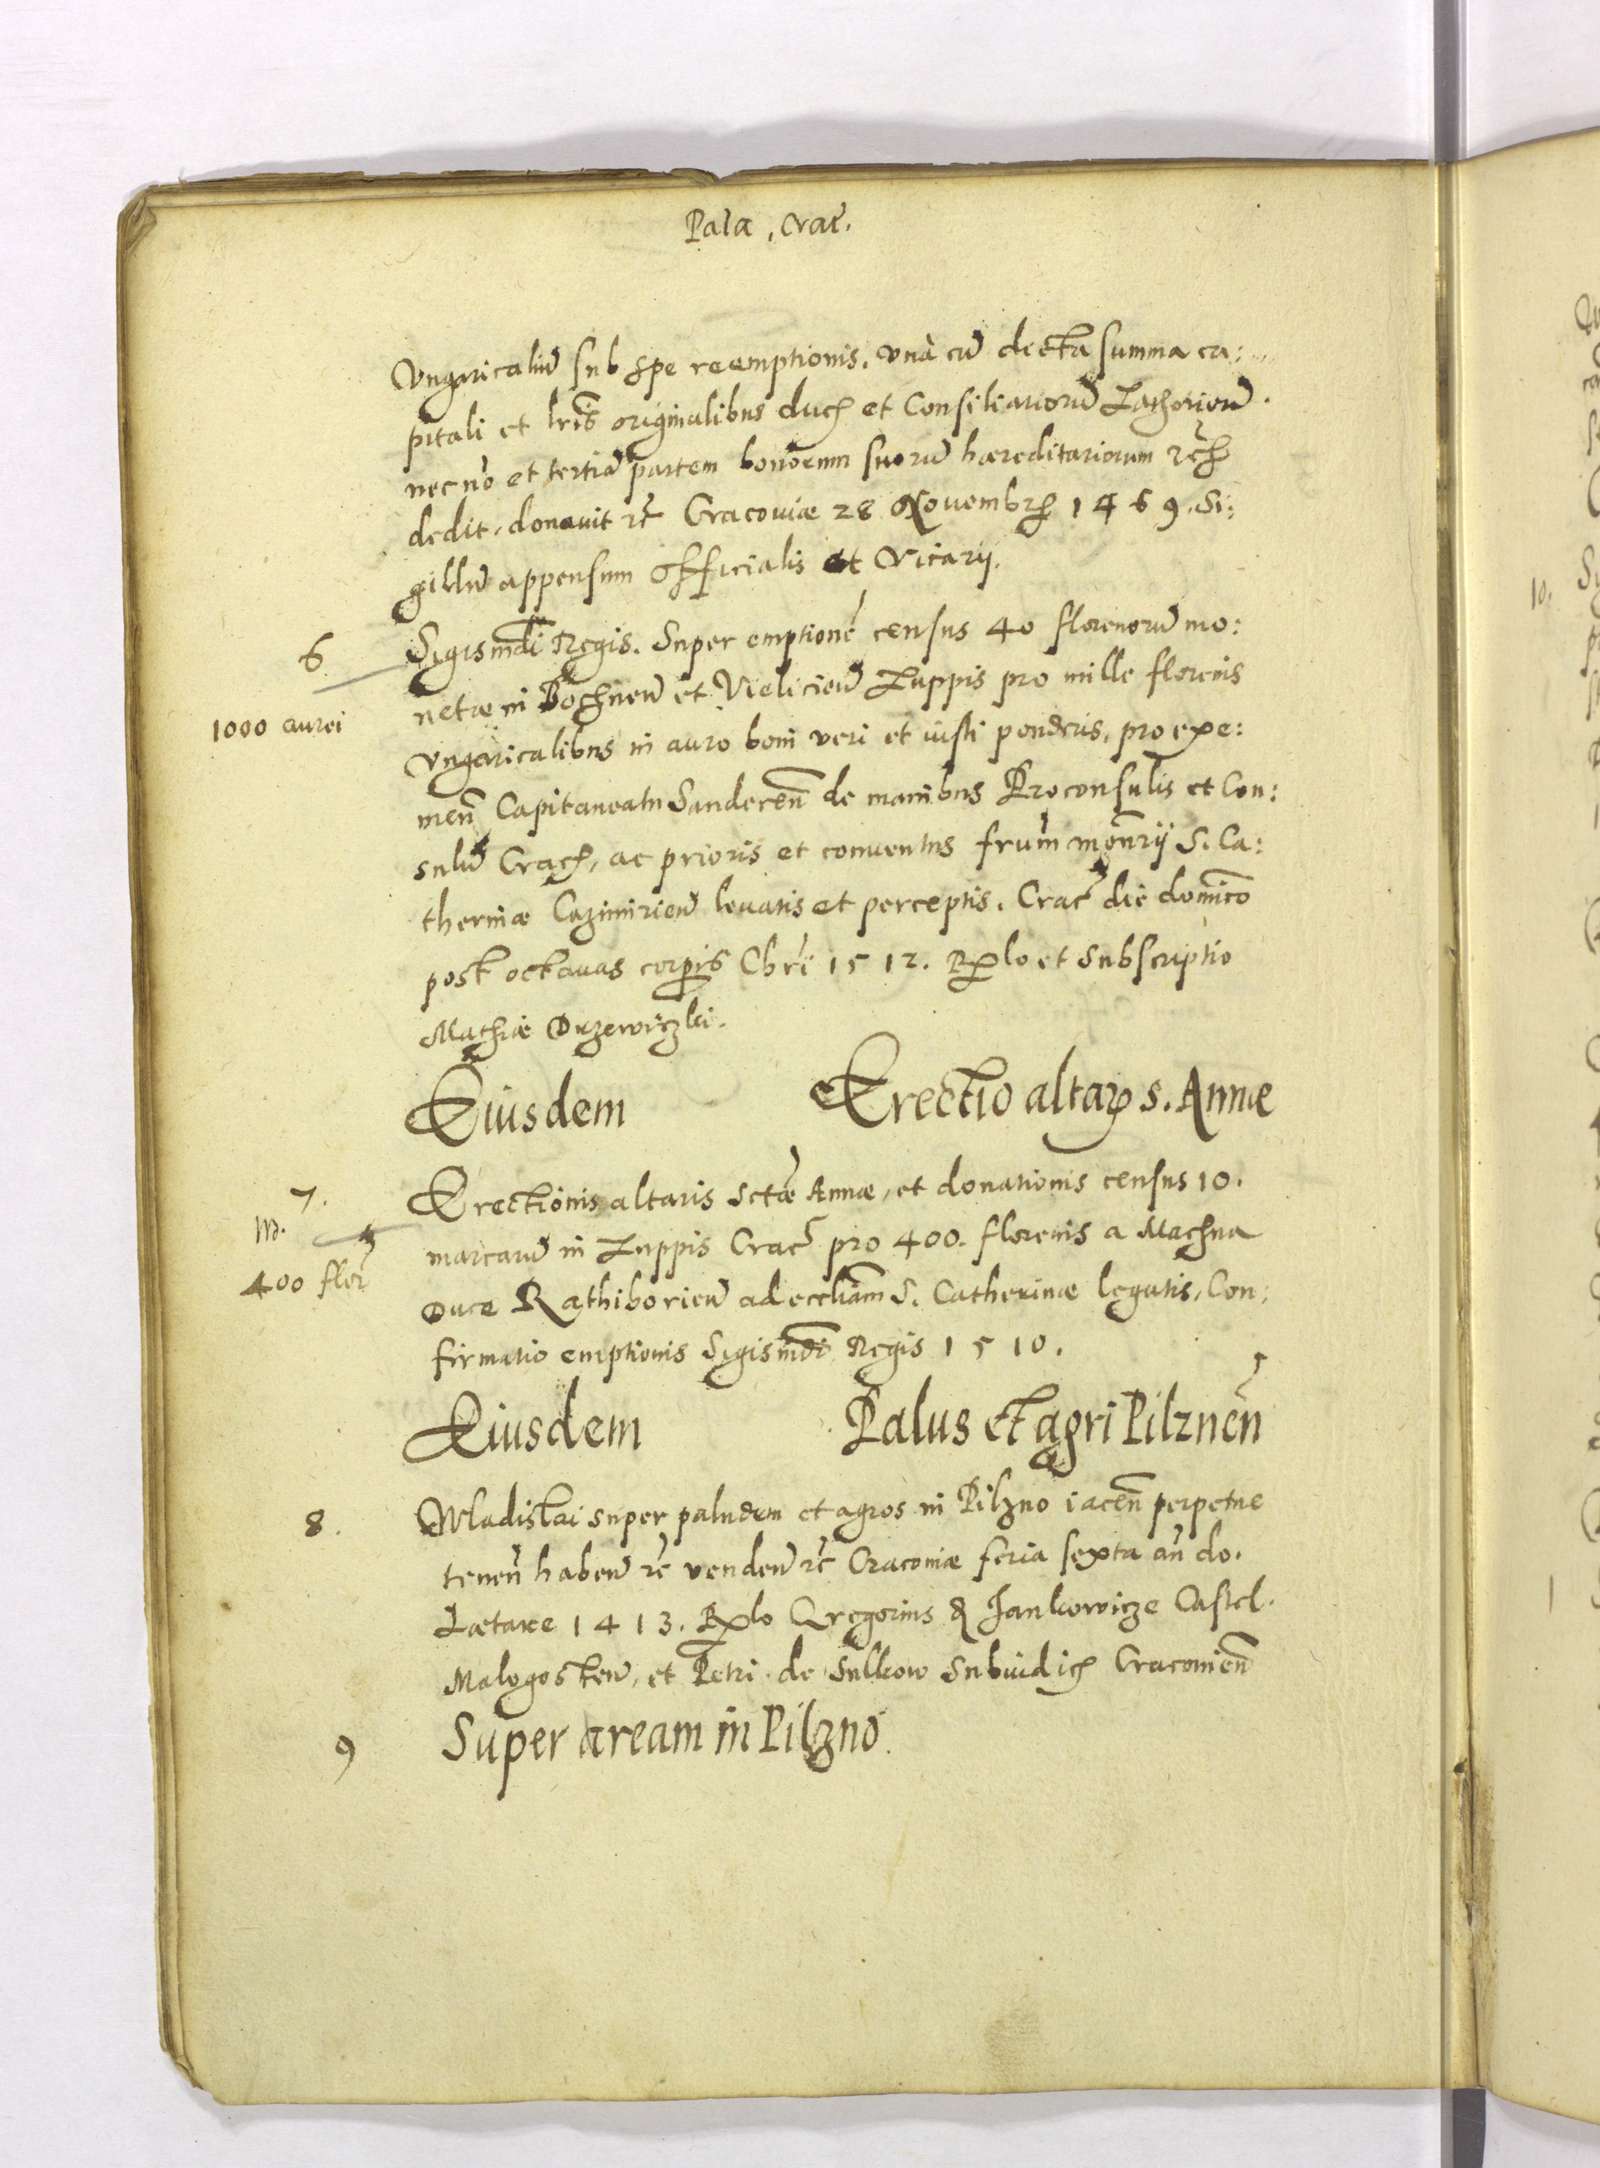 Pala. Crac.
Vngaricaliũ sub spe reemptionis. Vnà cũ dicta summa ca:
pitali et lr̃is originalibus duc. et Consiliariorũ Zathorieñ.
nec nõ et tertiã partem bonorum suorũ hæreditariorum
dedit, donauit rc̃ Cracoviæ 28 Novembr. 1469. Si:
gillũ appensum Officialis et Vicarij.
6. Sigismdi Regis. Super emptionẽ census 40 florenorũ mo:
netæ in Bochneñ et Vielicieñ Zuppis pro mille florenis
1000 aurei
Vngaricalibus in auro boni veri et iusti ponderis, pro exe:
meñ Capitaneatu Sandeceñ de manibus Proconsulis et Con:
sulũ Crac. ac prioris et conventus frum monrij S. Ca:
therinæ Cazimirieñ levatis et perceptis. Crac̃ die domico
post octavas corpis Chri 1512. Rlo et Subscriptio
Mathiæ Drzewiczki.
Eiusdem Erectio altar. s. Annæ
7. Erectionis altaris Sctæ Annæ, et donationis census 10.
m. marcarũ in Zuppis Crac̃ pro 400. florenis a Machna
400 flor
Duce Rathiborieñ ad eccliam S. Catherinæ legatis, Con:
firmatio emptionis Sigismdi Regis 1510.
Eiusdem Palus et agri Pilzneñ
8. Wladislai super paludem et agros in Pilzno iaceñ perpetue
teneñ habeñ rc̃ vendeñ rc̃ Cracoviæ feria sexta añ do.
Lætare 1413. Rlo Gregorius & Jankowicze Castel.
Malogosteñ, et Petri de Sulkow Subiudic. Cracovieñ
9 Super aream in Pilzno.
10.